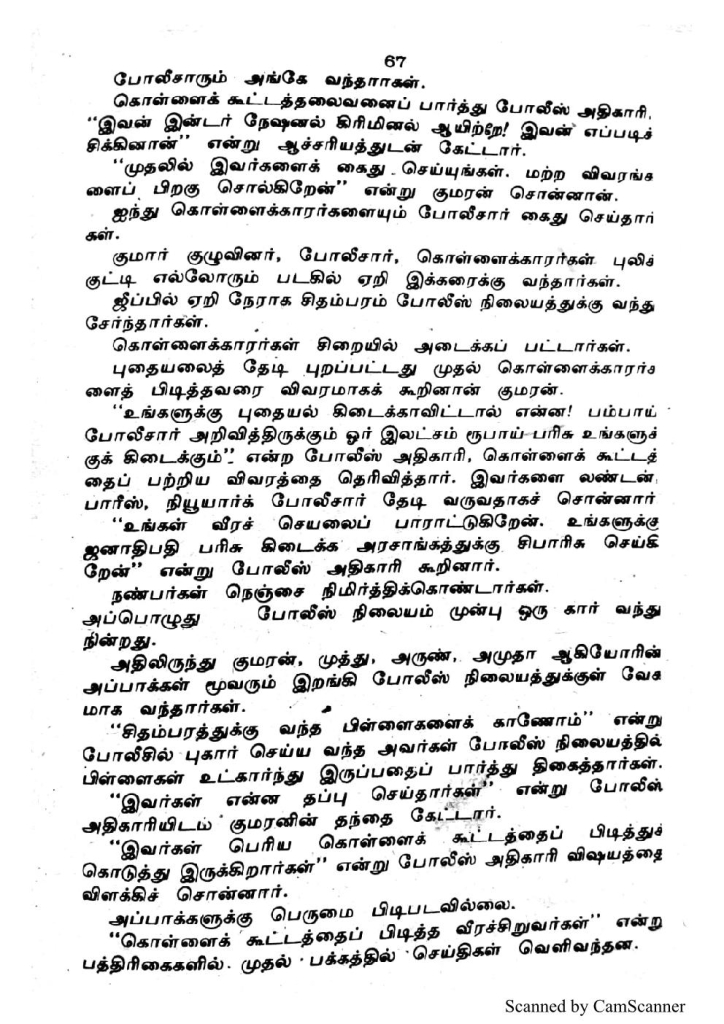 67
போலீசாரும் அங்கே வந்தாாகள்.
கொள்ளைக் கூட்டத்தலைவனைப் பார்த்து போலீஸ் அதிகாரி,
“இவன் இன்டர் நேஷனல் கிரிமினல் ஆயிற்றே! இவன் எப்படிச்
சிக்கினான்” என்று ஆச்சரியத்துடன் கேட்டார்.
“முதலில் இவர்களைக் கைது செய்யுங்கள். மற்ற விவரங்க
ளைப் பிறகு சொல்கிறேன்” என்று குமரன் சொன்னான்.
ஐந்து கொள்ளைக்காரர்களையும் போலீசார் கைது செய்தார்
கள்.
குமார் குழுவினர், போலீசார், கொள்ளைக்காரர்கள் புலிச்
குட்டி எல்லோரும் படகில் ஏறி இக்கரைக்கு வந்தார்கள்.
ஜீப்பில் ஏறி நேராக சிதம்பரம் போலீஸ் நிலையத்துக்கு வந்து
சேர்ந்தார்கள்.
கொள்ளைக்காரர்கள் சிறையில் அடைக்கப் பட்டார்கள்.
புதையலைத் தேடி புறப்பட்டது முதல் கொள்ளைக்காரர்க
ளைத் பிடித்தவரை விவரமாகக் கூறினான் குமரன்.
“உங்களுக்கு புதையல் கிடைக்காவிட்டால் என்ன! பம்பாய்
போலீசார் அறிவித்திருக்கும் ஓர் இலட்சம் ரூபாய் பரிசு உங்களுக்
குக் கிடைக்கும்” என்ற போலீஸ் அதிகாரி, கொள்ளைக் கூட்டத்
தைப் பற்றிய விவரத்தை தெரிவித்தார். இவர்களை லண்டன்,
பாரீஸ், நியூயார்க் போலீசார் தேடி வருவதாகச் சொன்னார்
“உங்கள் வீரச் செயலைப் பாராட்டுகிறேன். உங்களுக்கு
ஜனாதிபதி பரிசு கிடைக்க அரசாங்கத்துக்கு சிபாரிசு செய்கி
றேன்” என்று போலீஸ் அதிகாரி கூறினார்.
நண்பர்கள் நெஞ்சை நிமிர்த்திக்கொண்டார்கள்.
அப்பொழுது போலீஸ் நிலையம் முன்பு ஒரு கார் வந்து
நின்றது.
அதிலிருந்து குமரன், முத்து, அருண், அமுதா ஆகியோரின்
அப்பாக்கள் மூவரும் இறங்கி போலீஸ் நிலையத்துக்குள் வேக
மாக வந்தார்கள்.
“சிதம்பரத்துக்கு வந்த பிள்ளைகளைக் காணோம்” என்று
போலீசில் புகார் செய்ய வந்த அவர்கள் போலீஸ் நிலையத்தில்
பிள்ளைகள் உட்கார்ந்து இருப்பதைப் பார்த்து திகைத்தார்கள்.
“இவர்கள் என்ன தப்பு செய்தார்கள்” என்று போலீஸ்
அதிகாரியிடம் குமரனின் தந்தை கேட்டார்.
“இவர்கள் பெரிய கொள்ளைக் கூட்டத்தைப் பிடித்துச்
கொடுத்து இருக்கிறார்கள்” என்று போலீஸ் அதிகாரி விஷயத்தை
விளக்கிச் சொன்னார்.
அப்பாக்களுக்கு பெருமை பிடிபடவில்லை.
“கொள்ளைக் கூட்டத்தைப் பிடித்த வீரச்சிறுவர்கள்” என்று
பத்திரிகைகளில். முதல் பக்கத்தில் செய்திகள் வெளிவந்தன.
Scanned by CamScanner